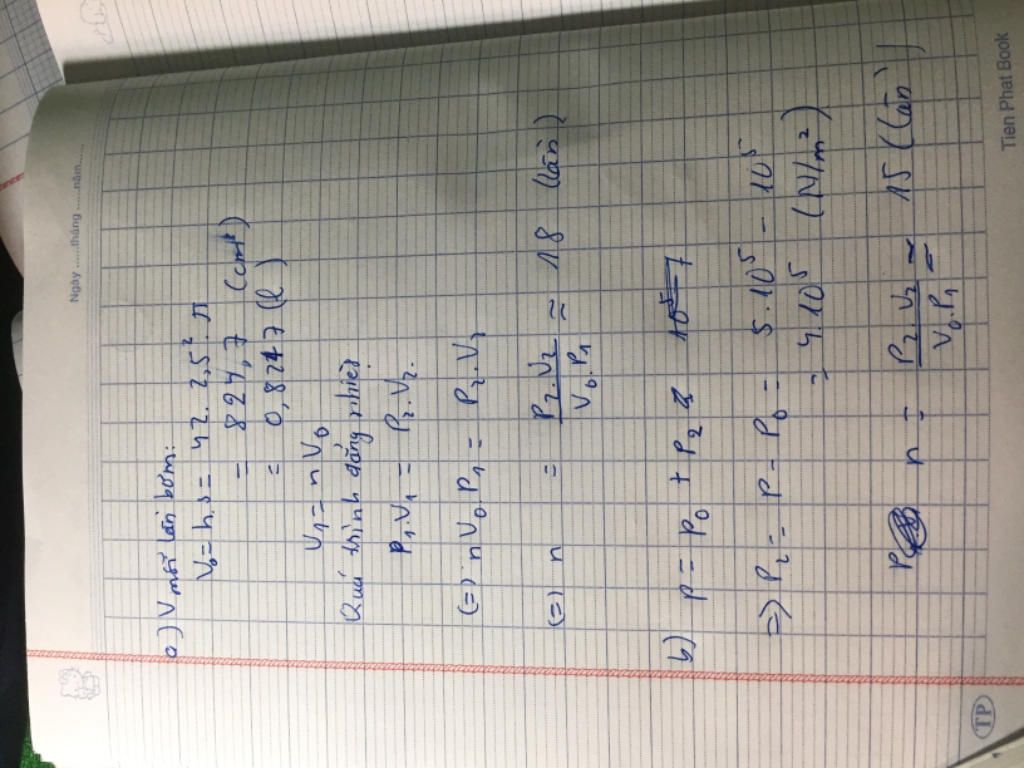 Ngày ......tháng ......năm......
a) V mỗi lần bơm:
V₀ = h.s = 42. 2,5². π
= 824,7 (cm³)
= 0,8247 (l)
V₁ = n V₀
Quá trình đẳng nhiệt
P₁.V₁ = P₂.V₂.
(=) n V₀.P₁ = P₂.V₂
(=) n = P₂.V₂ / V₀.P₁ ≈ 18 (lần)
b) P = P₀ + P₂
=) P₂ = P - P₀ = 5.10⁵ - 10⁵
= 4.10⁵ (N/m²)
n = P₂.V₂ / V₀.P₁ ≈ 15 (lần)
TP
Tien Phat Book